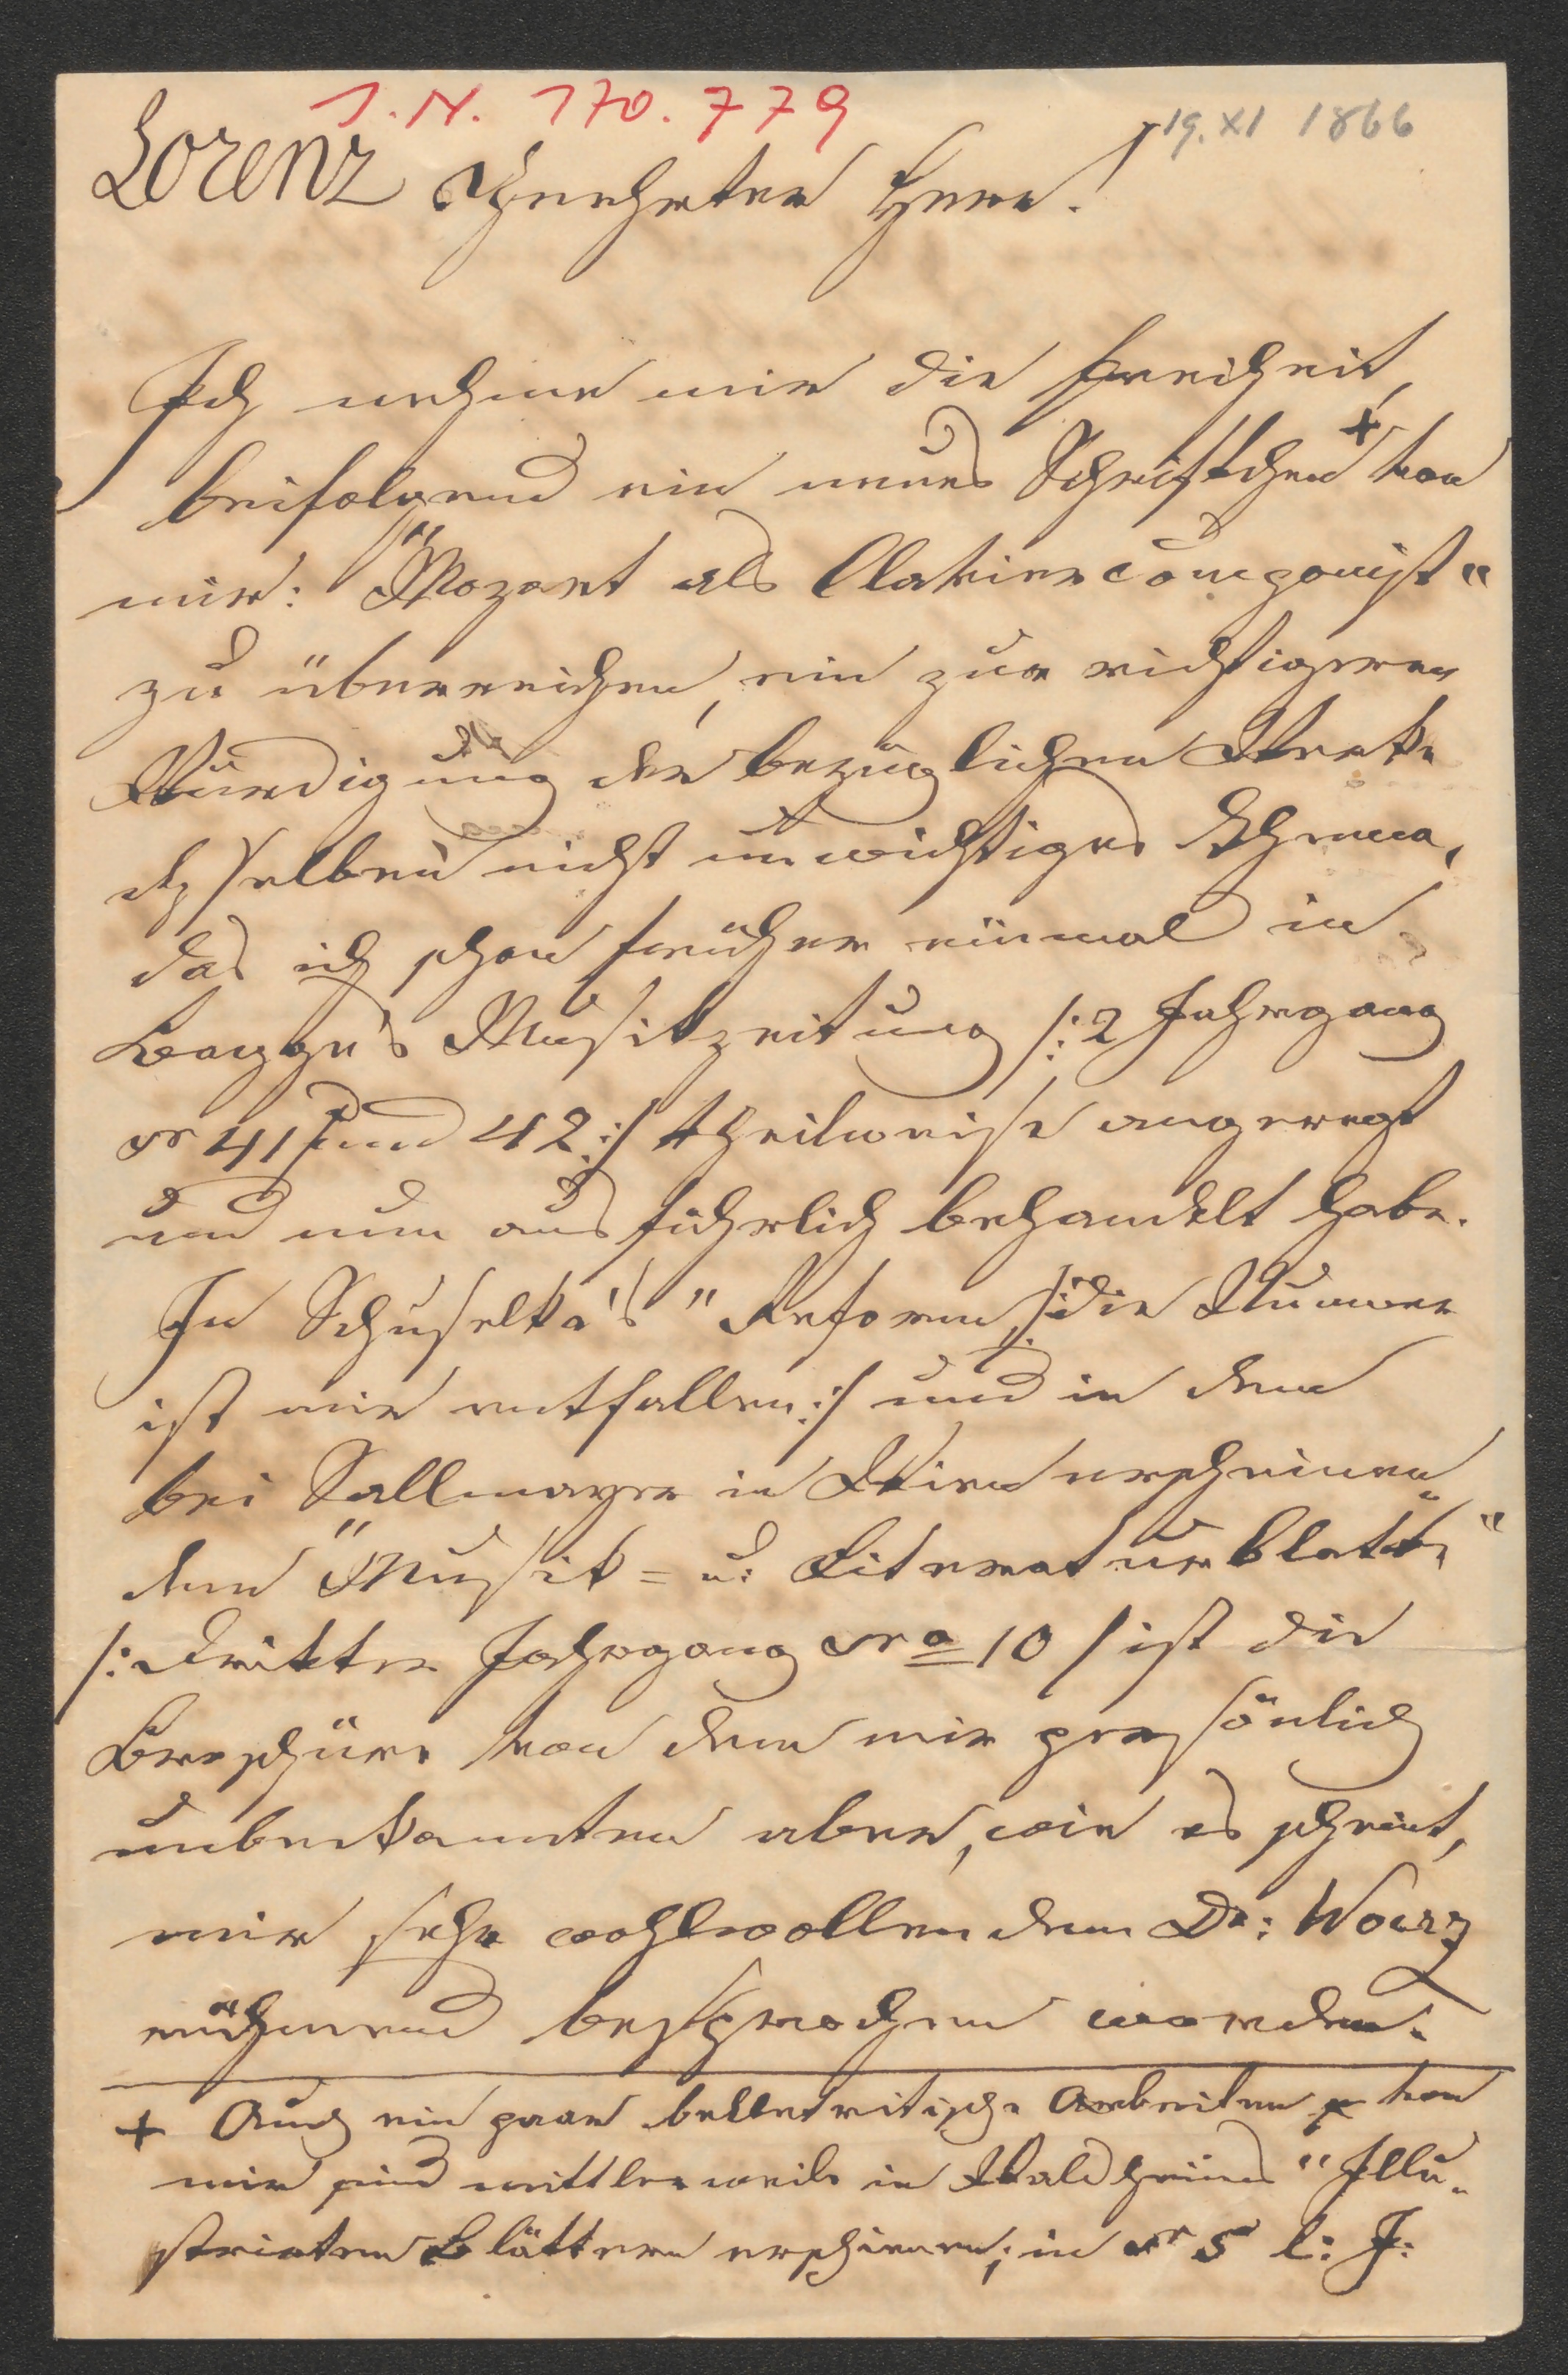 J. N. 170.779
19. XI 1866
Lorenz
Geehrter Herr!
Ich nehme mir die Freiheit,
beifolgend ein neues Schriftchen + von
mir: "Mozart als Claviercomponist"
zu überreichen, ein zur richtigeren
Würdigung der bezüglichen Werke
desselben nicht unwichtiges Thema,
das ich schon früher einmal in
Bagge's Musikzeitung /: 2 Jahrgang
Nr 41 und 42 :/ theilweise angeregt
und nun ausführlich behandelt habe.
In Schuselka's "Reform" /: die Numer
ist mir entfallen :/ und in dem
bei Sallmayer in Wien erscheinen-
den "Musik= u: Literaturblatte"
/: dritter Jahrgang No 10 / ist die
Broschüre von dem mir persönlich
unbekannten aber, wie es scheint,
mir sehr wohlwollenden Dr: Woerz
rühmend besprochen worden.
+ Auch ein paar belletristische Arbeiten von
mir sind mittlerweile in Waldheims "Illu-
strirten Blättern erschienen; in Nr 5 l: J: